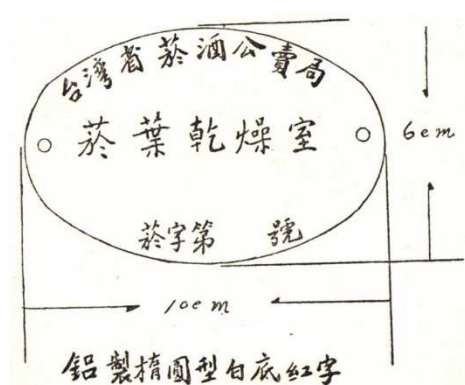 台灣省菸酒公賣局
菸葉乾燥室
菸字第　號
6cm
10cm
鋁製楕圓型白底紅字